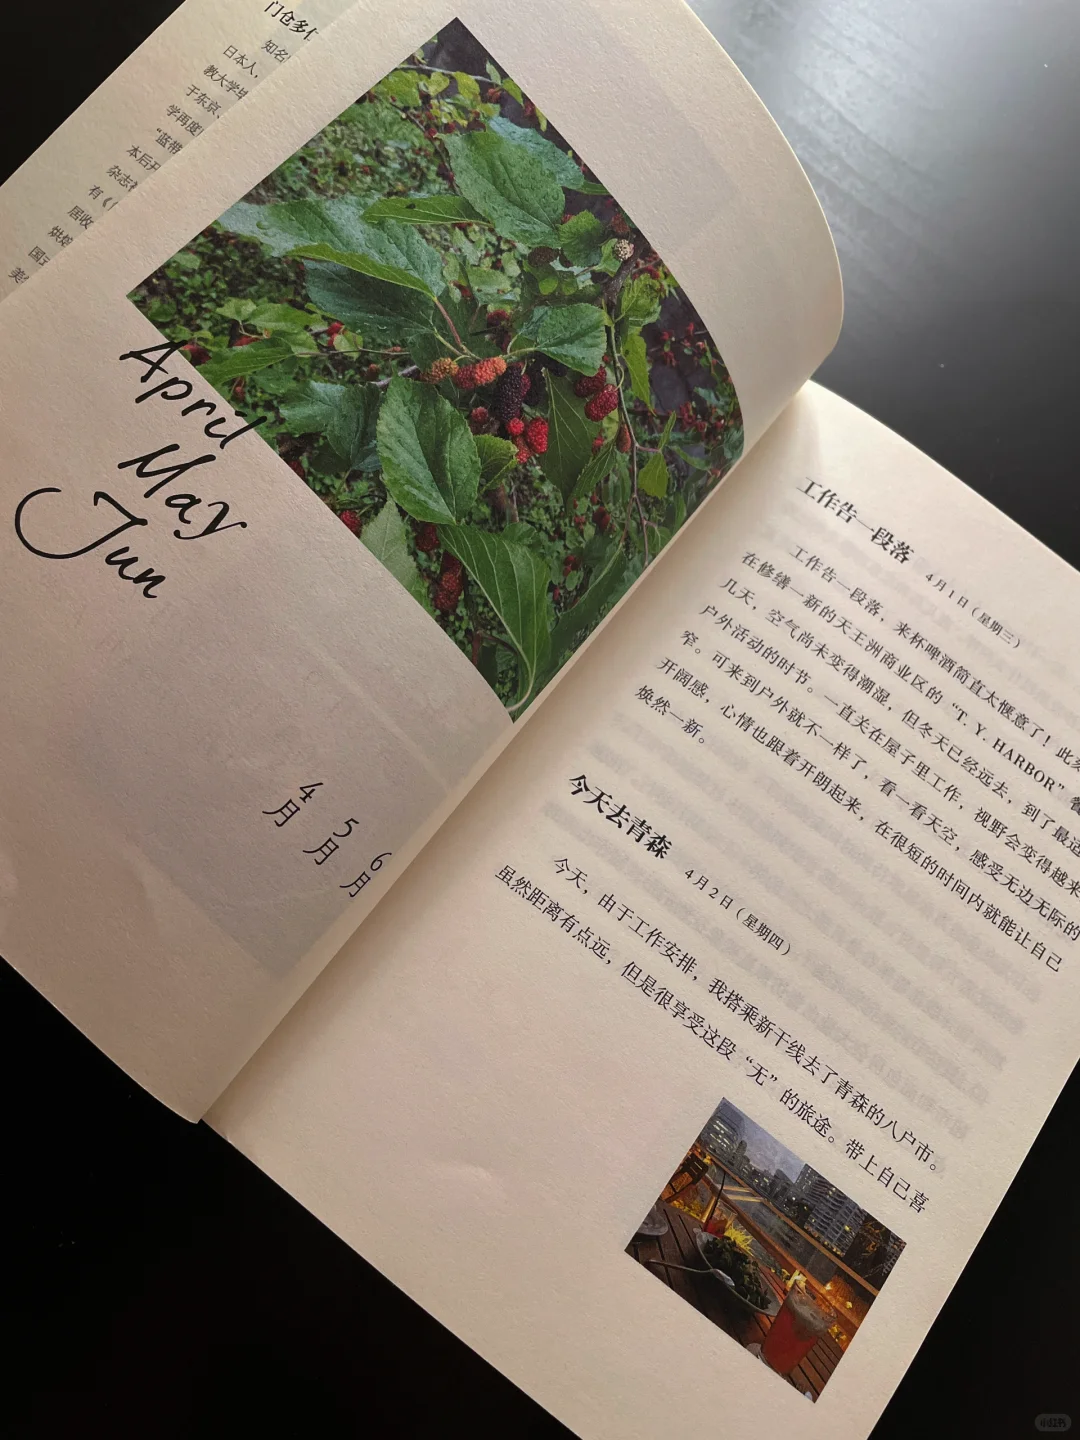 门仓多
知名
日本人，
教大学毕
于东京、
学再度
“蓝带
本后开
杂志
有《
居收
烘焙
国
美
April
May
Jun
4月
5月
6月
工作告一段落 4月1日（星期三）
工作告一段落，来杯啤酒简直太惬意了！此刻
在修缮一新的天王洲商业区的“T. Y. HARBOR”餐
几天，空气尚未变得潮湿，但冬天已经远去，到了最适
户外活动的时节。一直关在屋子里工作，视野会变得越来
窄。可来到户外就不一样了，看一看天空，感受无边无际的
开阔感，心情也跟着开朗起来，在很短的时间内就能让自己
焕然一新。
今天去青森 4月2日（星期四）
今天，由于工作安排，我搭乘新干线去了青森的八户市。
虽然距离有点远，但是很享受这段“无”的旅途。带上自己喜